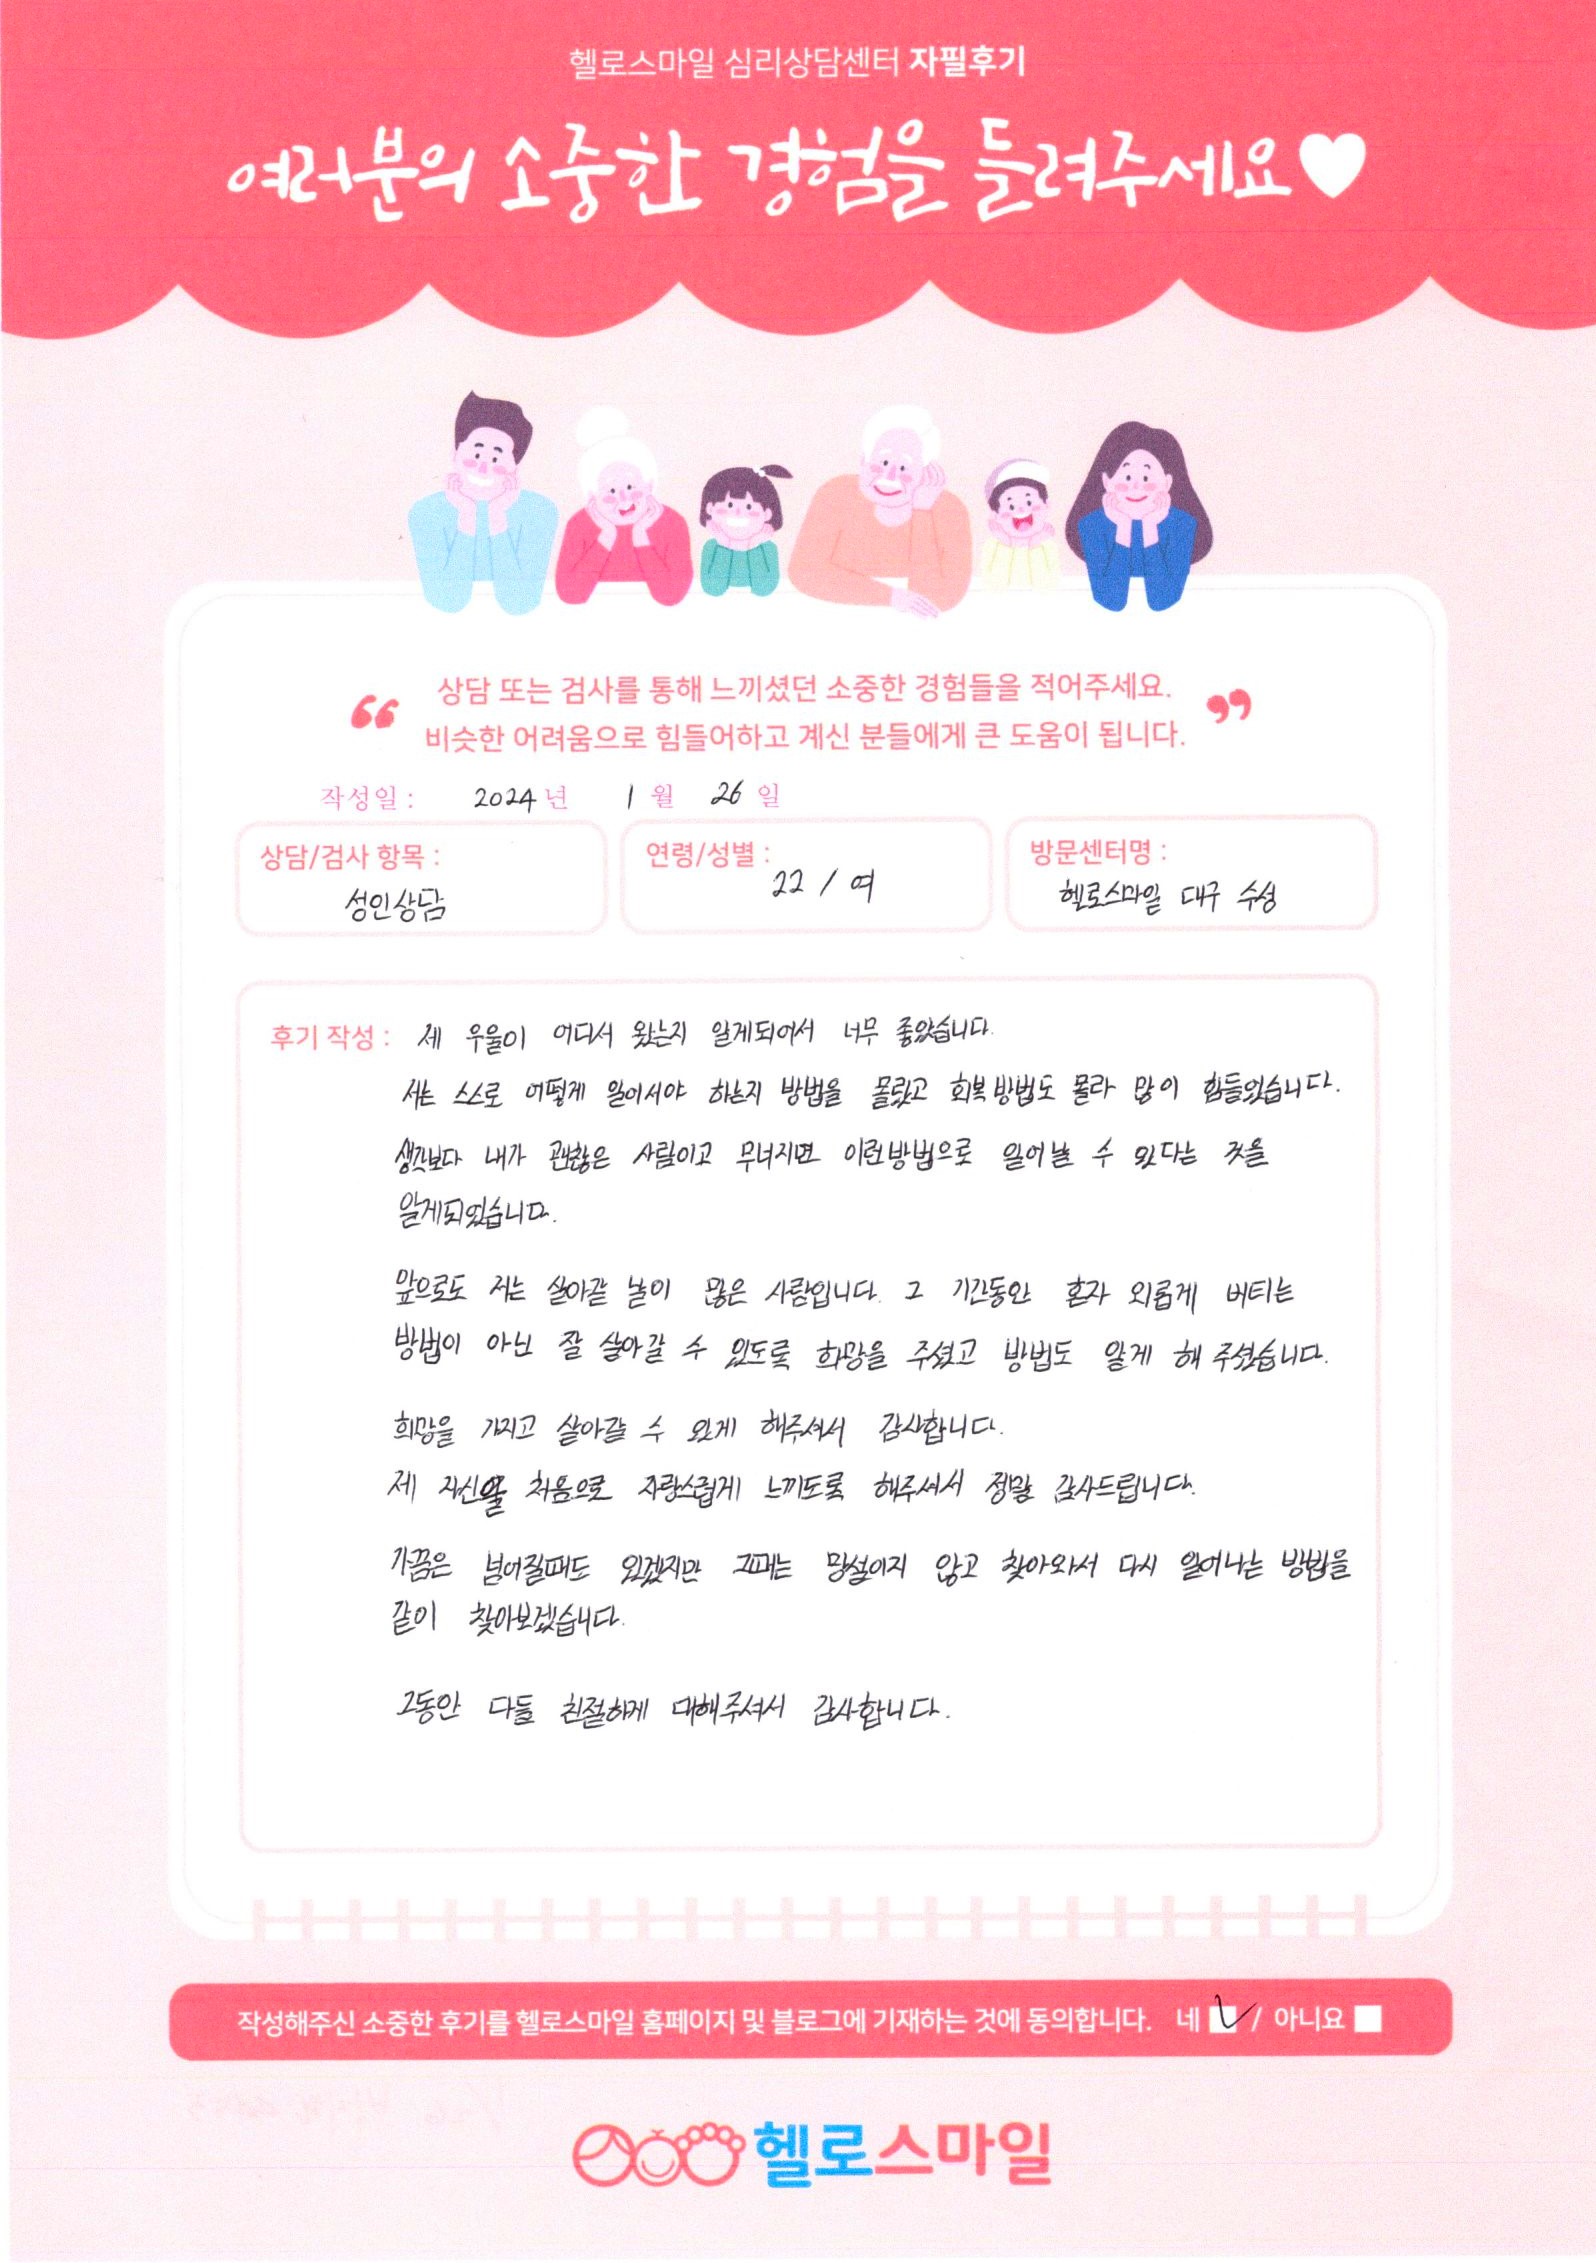 헬로스마일 심리상담센터 자필후기
여러분의 소중한 경험을 들려주세요♥
“ 상담 또는 검사를 통해 느끼셨던 소중한 경험들을 적어주세요. ”
비슷한 어려움으로 힘들어하고 계신 분들에게 큰 도움이 됩니다.
작성일 : 2024 년 1 월 26 일
상담/검사 항목 : 성인상담
연령/성별 : 22 / 여
방문센터명 : 헬로스마일 대구 수성
후기 작성 : 제 우울이 어디서 왔는지 알게되어서 너무 좋았습니다.
저는 스스로 어떻게 일어서야 하는지 방법을 몰랐고 회복방법도 몰라 많이 힘들었습니다.
생각보다 내가 괜찮은 사람이고 무너지면 이런방법으로 일어날 수 있다는 것을
알게되었습니다.
앞으로도 저는 살아갈 날이 많은 사람입니다. 그 기간동안 혼자 외롭게 버티는
방법이 아닌 잘 살아갈 수 있도록 희망을 주셨고 방법도 알게 해 주셨습니다.
희망을 가지고 살아갈 수 있게 해주셔서 감사합니다.
제 자신을 처음으로 자랑스럽게 느끼도록 해주셔서 정말 감사드립니다.
가끔은 넘어질때도 있겠지만 그때는 망설이지 않고 찾아와서 다시 일어나는 방법을
같이 찾아보겠습니다.
그동안 다들 친절하게 대해주셔서 감사합니다.
작성해주신 소중한 후기를 헬로스마일 홈페이지 및 블로그에 기재하는 것에 동의합니다. 네 / 아니요
헬로스마일